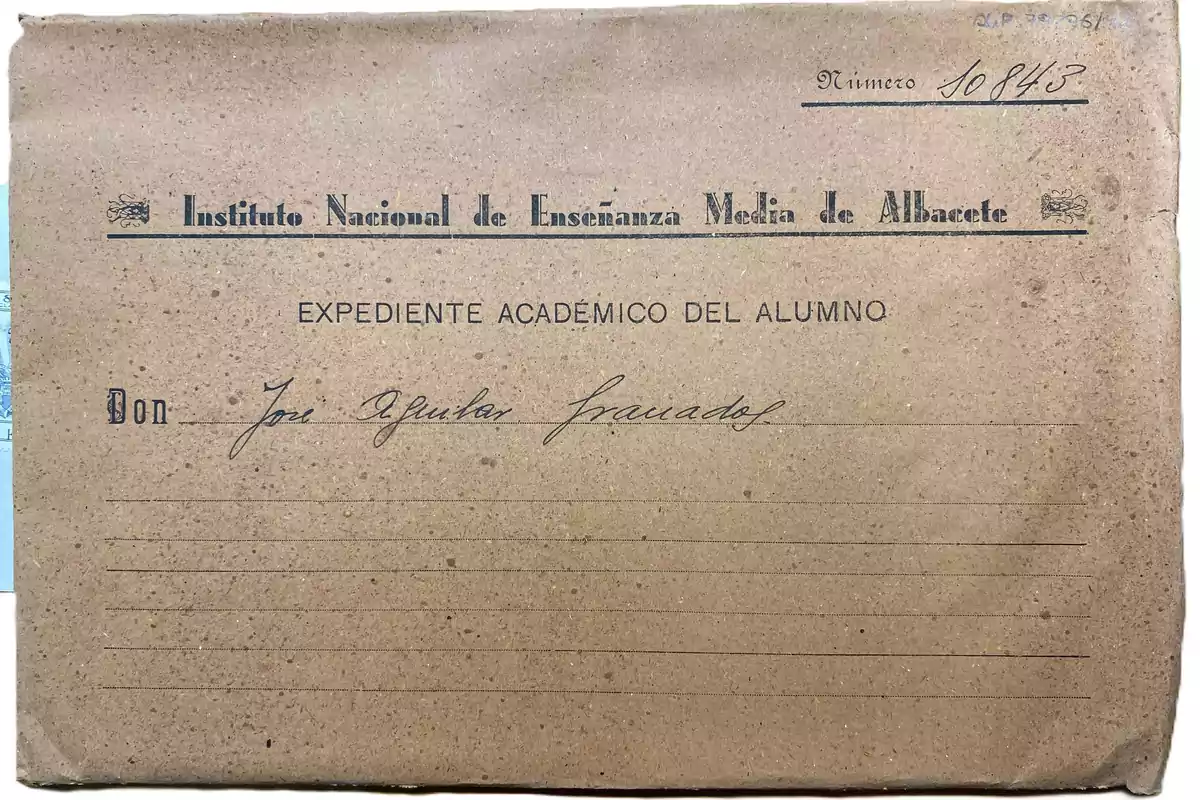 Número 10843
Instituto Nacional de Enseñanza Media de Albacete
EXPEDIENTE ACADÉMICO DEL ALUMNO
Don José Aguilar Granados.